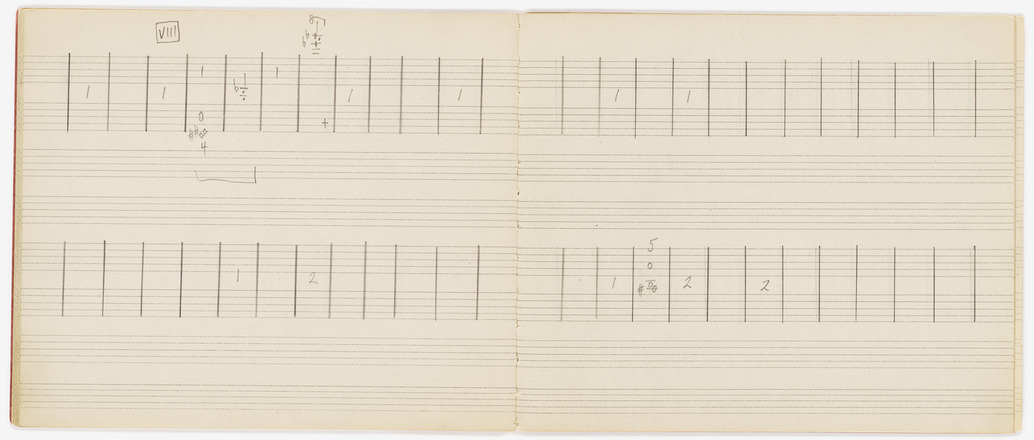 VIII
8
1 1 1 1 1 1 1 1
0
4
5
0
1 2 1 2 2